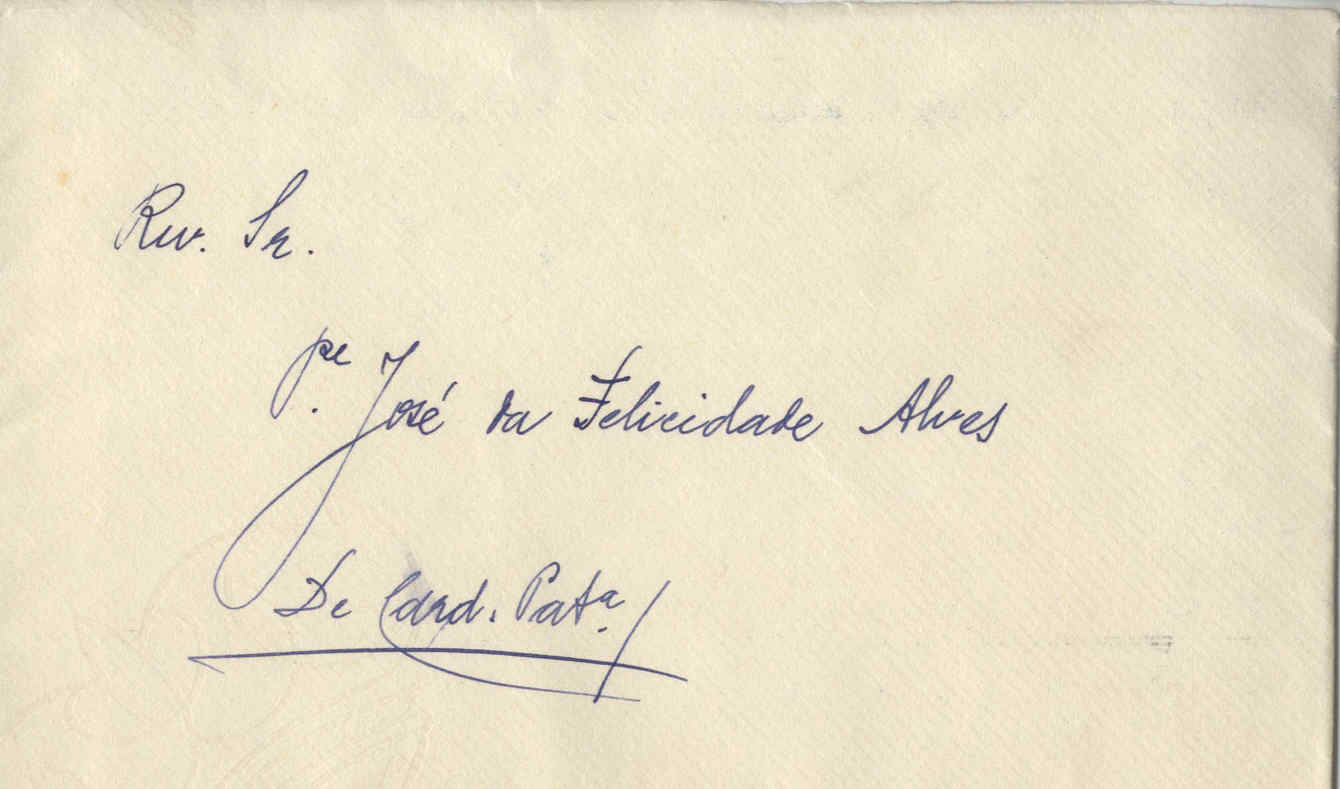 Rev. Sr.
Pe. José da Felicidade Alves
De Card. Pata.